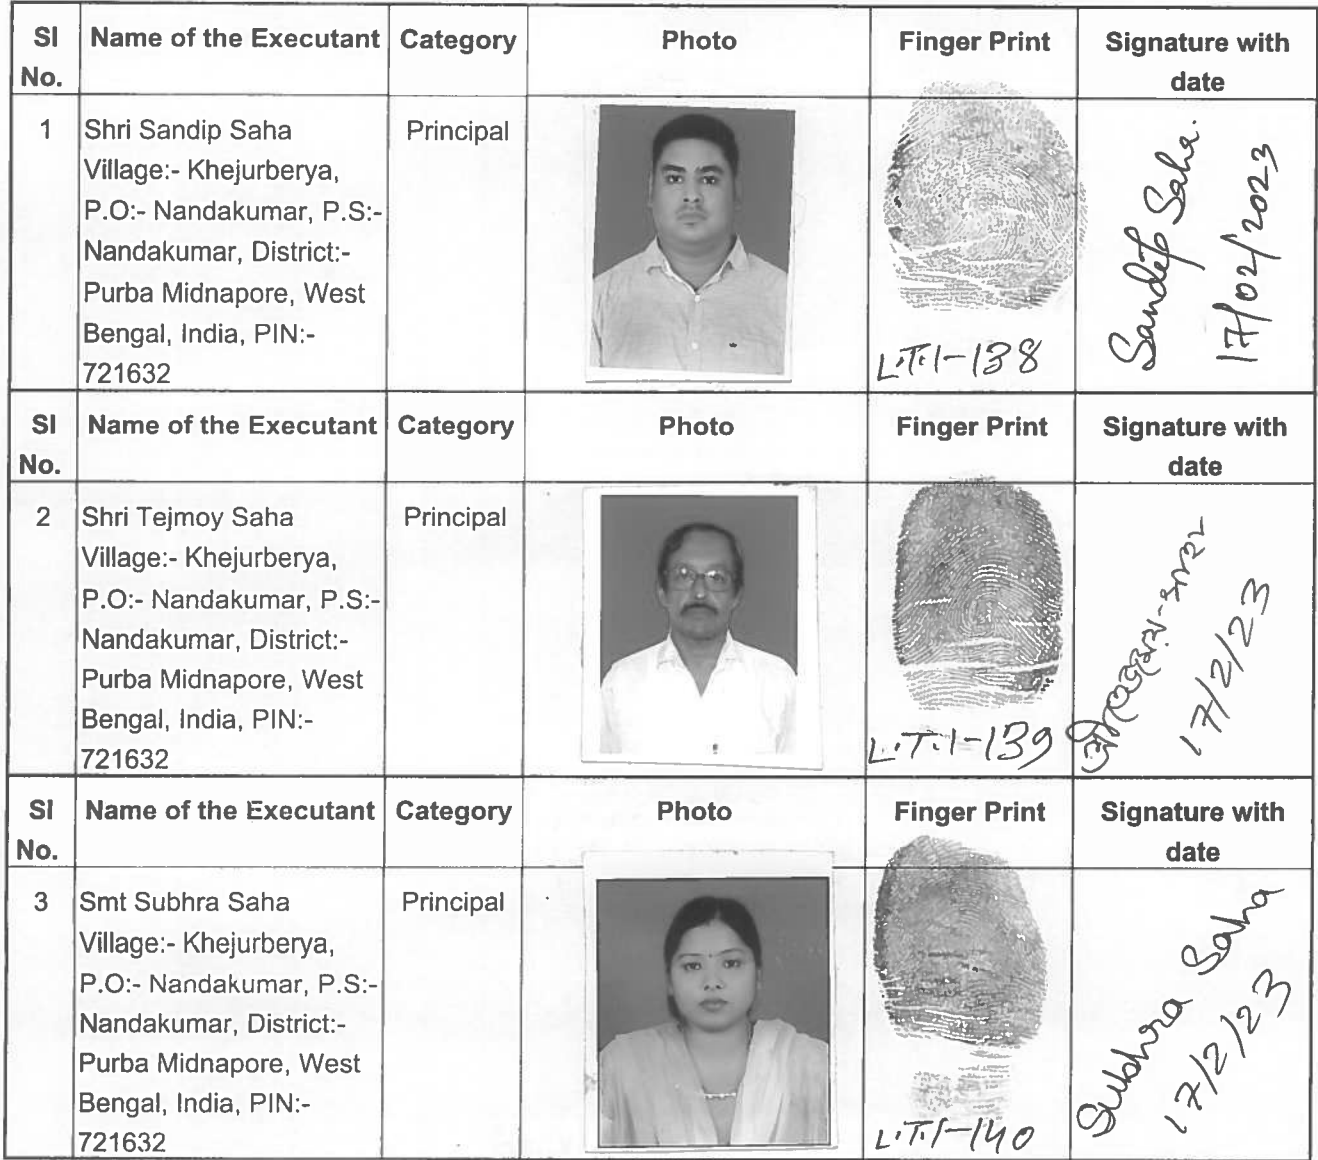 Sl No. Name of the Executant Category Photo Finger Print Signature with date
1 Shri Sandip Saha Principal
Village:- Khejurberya,
P.O:- Nandakumar, P.S:-
Nandakumar, District:-
Purba Midnapore, West
Bengal, India, PIN:-
721632
L.T.I-138
Sandip Saha.
17/02/2023
Sl No. Name of the Executant Category Photo Finger Print Signature with date
2 Shri Tejmoy Saha Principal
Village:- Khejurberya,
P.O:- Nandakumar, P.S:-
Nandakumar, District:-
Purba Midnapore, West
Bengal, India, PIN:-
721632
L.T.I-139
17/2/23
Sl No. Name of the Executant Category Photo Finger Print Signature with date
3 Smt Subhra Saha Principal
Village:- Khejurberya,
P.O:- Nandakumar, P.S:-
Nandakumar, District:-
Purba Midnapore, West
Bengal, India, PIN:-
721632
L.T.I-140
Subhra Saha
17/2/23